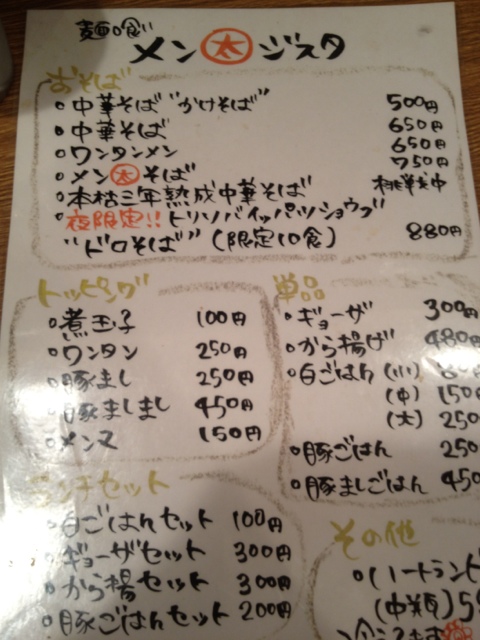 麺喰い
メン太ジスタ
おそば
中華そば“かけそば” 500円
中華そば 650円
ワンタンメン 650円
メン太そば 750円
本枯三年熟成中華そば 挑戦中
夜限定!! トリソバイッパツショウブ
“ドロそば”(限定10食) 880円
トッピング
煮玉子 100円
ワンタン 250円
豚まし 250円
豚ましまし 450円
メンマ 150円
単品
ギョーザ 300円
から揚げ 480円
白ごはん (小) 80円
(中) 150
(大) 250
豚ごはん 250
豚ましごはん 450
ランチセット
白ごはんセット 100円
ギョーザセット 300円
から揚セット 300円
豚ごはんセット 200円
その他
ハートランド
(中瓶) 5